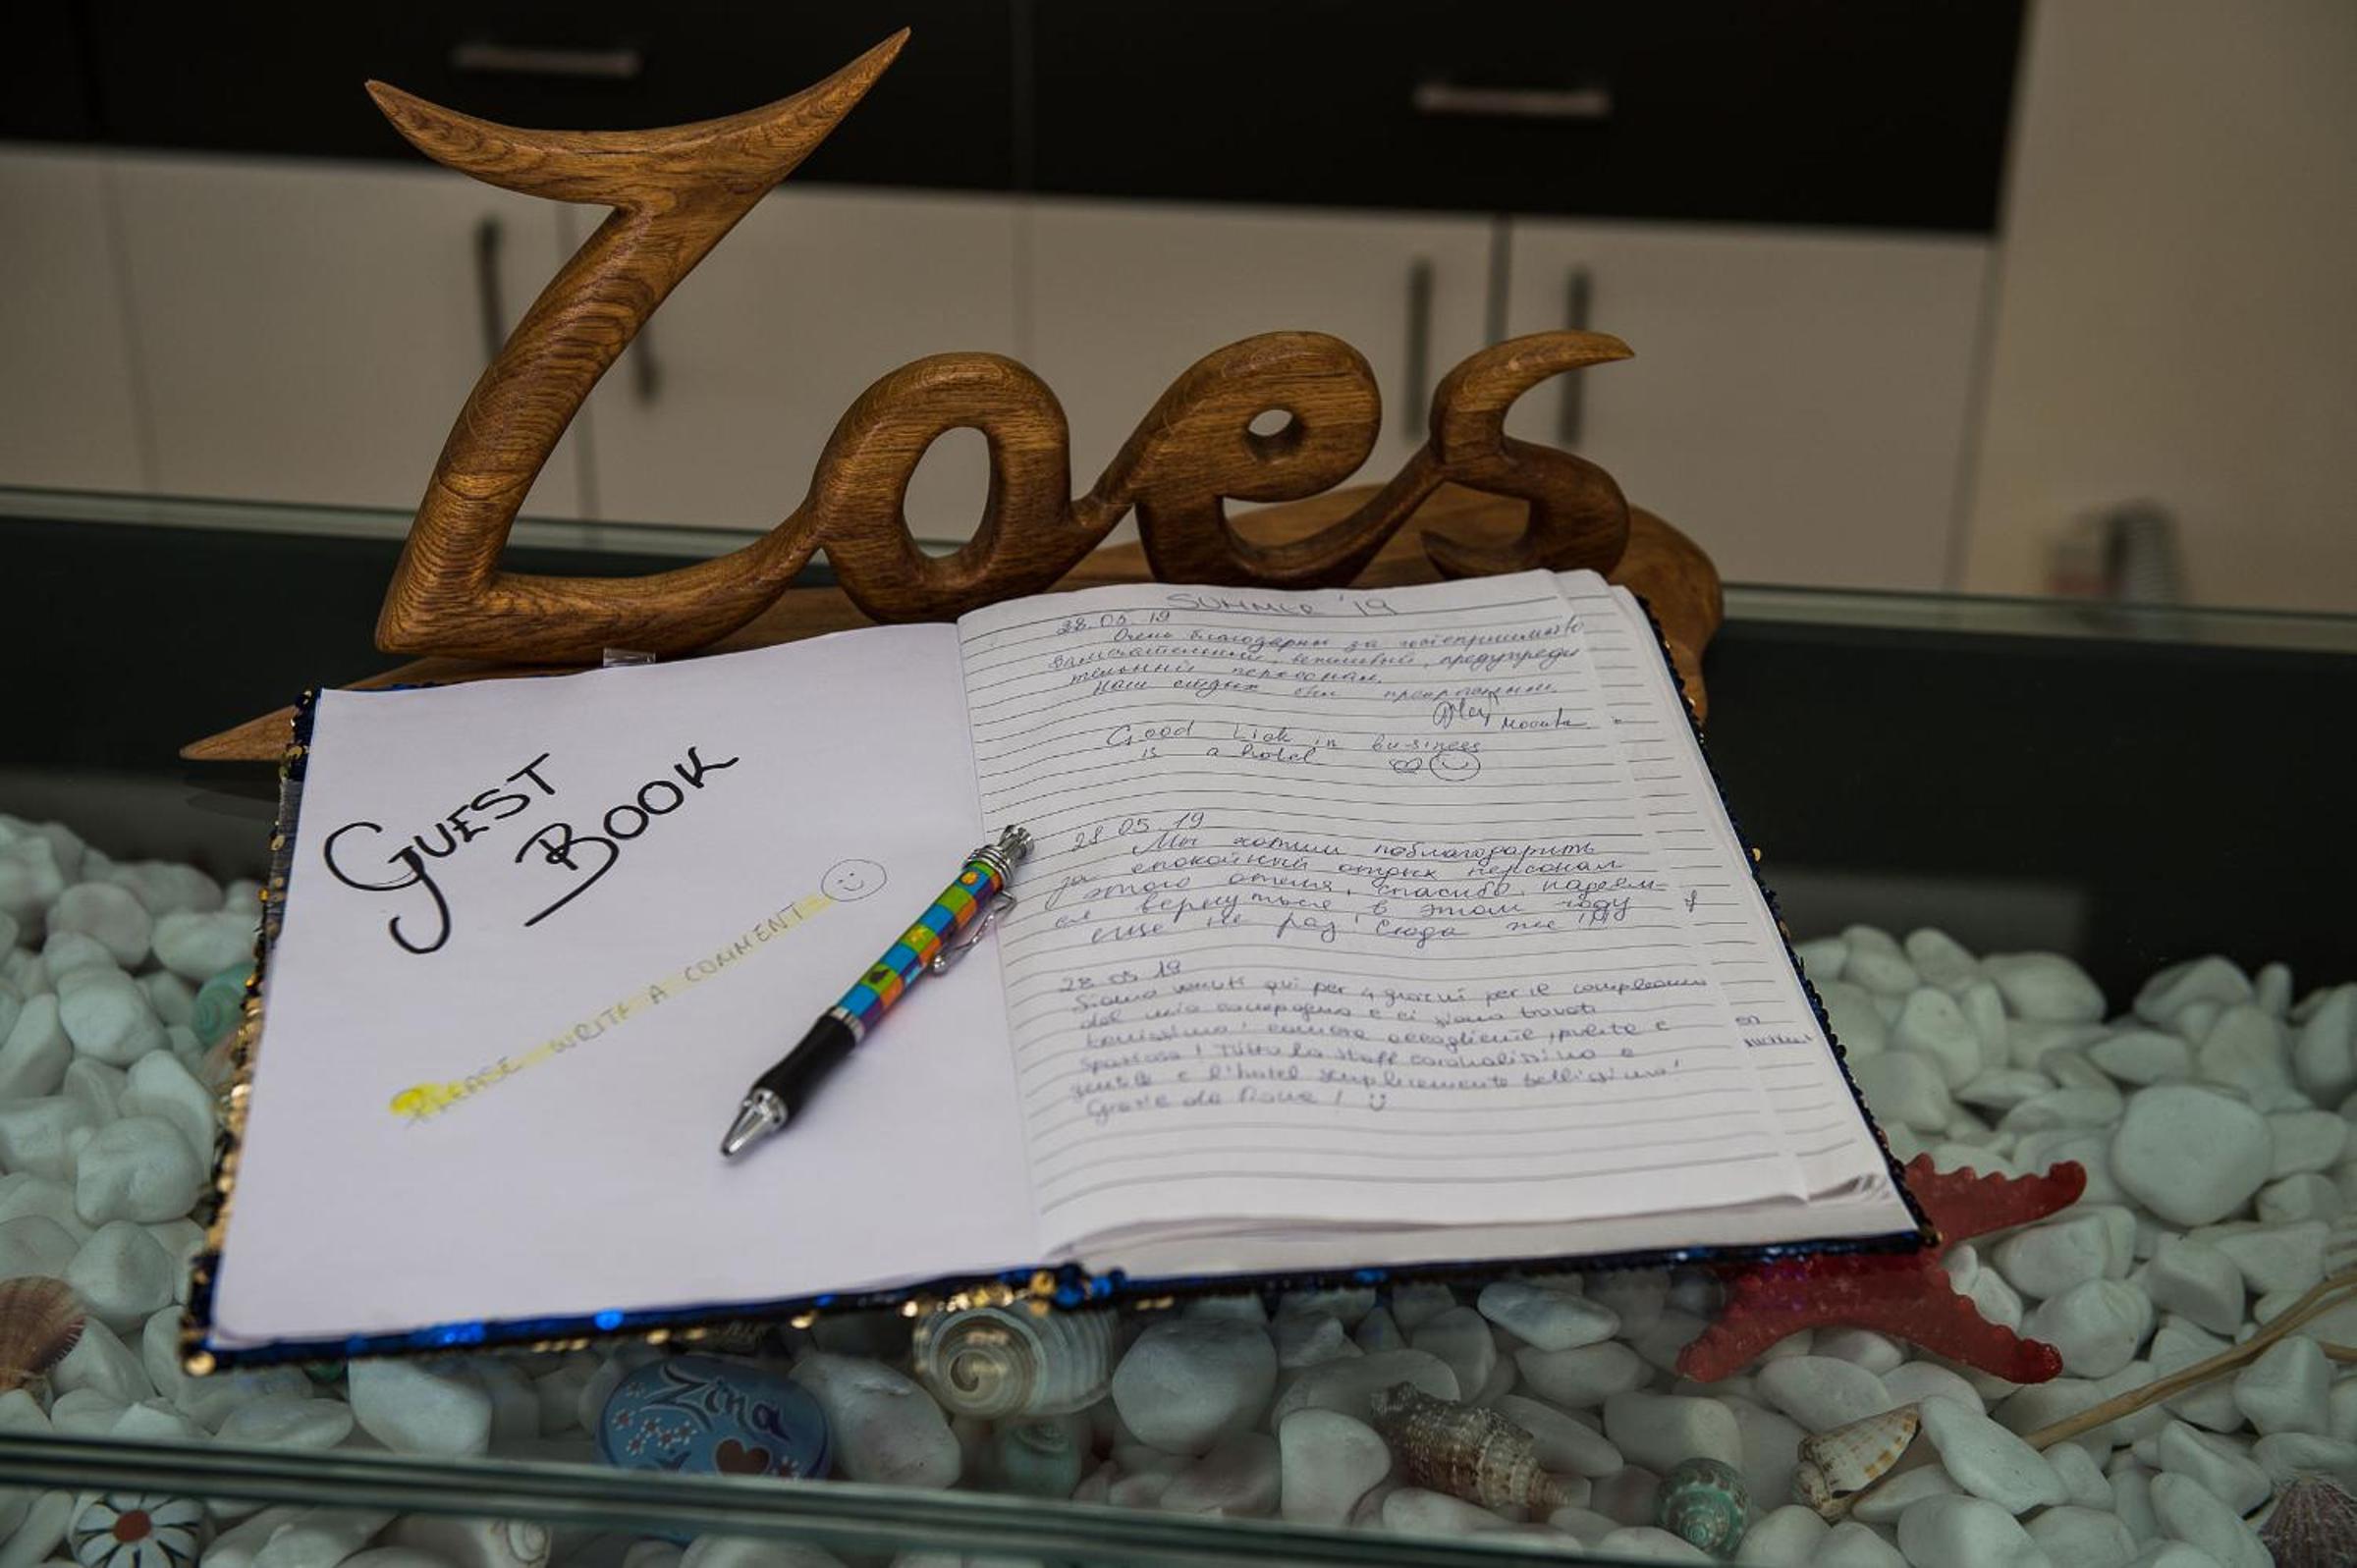 Zoes
GUEST
BOOK
PLEASE WRITE A COMMENT
SUMMER '19
28.05.19
Очень благодарны за гостеприимство
замечательный, вежливый, предупреди
тельный персонал.
Наш отдых был
Москва
Good Lick in business
is a hotel
28.05.19
Мы хотим поблагодарить
за спокойный отдых персонал
этого отеля, спасибо, надеем-
ся вернуться в этом году
еще не раз! Сюда же !!!!
28.05.19
Siamo venuti qui per 4 giorni per il compleanno
del mio compagno e ci siamo trovati
benissimo! camera accogliente, pulita e
spaziosa! Tutto lo staff cordialissimo e
gentile e l'hotel semplicemente bellissimo!
Grazie da Roma!
Zina